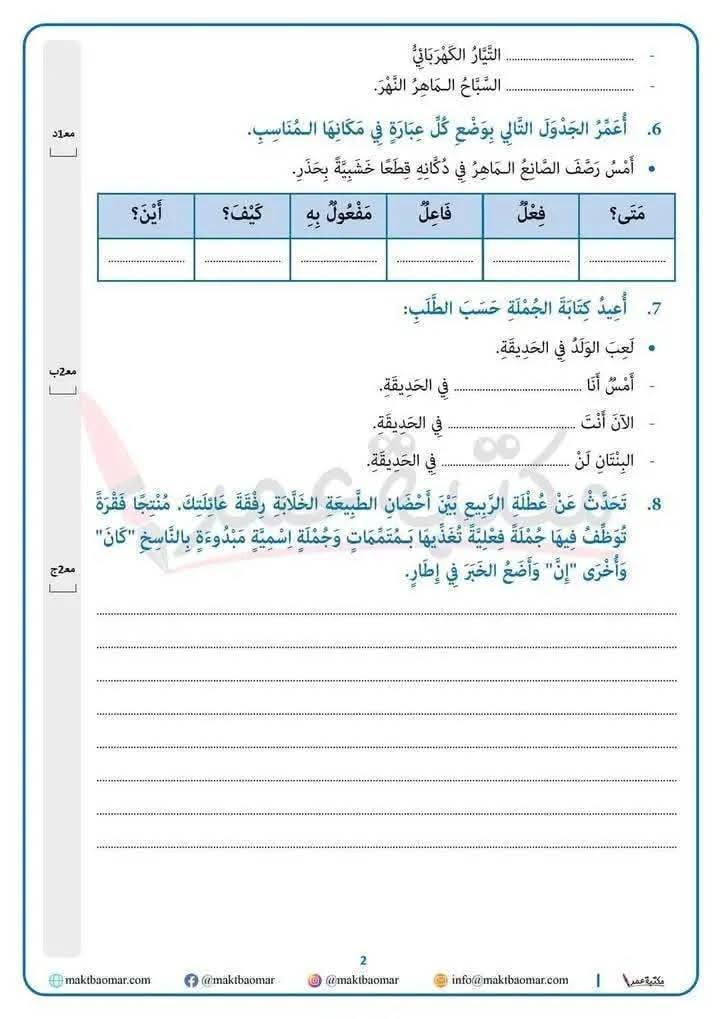 - ........................................ التَّيَّارُ الكَهْرَبَائِيُّ
- ........................................ السَّبَّاحُ الـمَاهِرُ النَّهْرَ.
6. أُعَمِّرُ الجَدْوَلَ التَّالِي بِوَضْعِ كُلِّ عِبَارَةٍ فِي مَكَانِهَا الـمُنَاسِبِ.
مع1د
• أَمْسُ رَصَّفَ الصَّانِعُ الـمَاهِرُ فِي دُكَّانِهِ قِطَعًا خَشَبِيَّةً بِحَذَرِ.
مَتَى؟ فِعْلٌ فَاعِلٌ مَفْعُولٌ بِهِ كَيْفَ؟ أَيْنَ؟
........................ ........................ ........................ ........................ ........................ ........................
7. أُعِيدُ كِتَابَةَ الجُمْلَةِ حَسَبَ الطَّلَبِ:
• لَعِبَ الوَلَدُ فِي الحَدِيقَةِ.
مع2ب
- أَمْسُ أَنَا ........................................ فِي الحَدِيقَةِ.
- الآنَ أَنْتَ ........................................ فِي الحَدِيقَةِ.
- البِنْتَانِ لَنْ ........................................ فِي الحَدِيقَةِ.
مكتبة عمر
8. تَحَدَّثْ عَنْ عُطْلَةِ الرَّبِيعِ بَيْنَ أَحْضَانِ الطَّبِيعَةِ الخَلَّابَةِ رِفْقَةَ عَائِلَتِكَ. مُنْتِجًا فَقْرَةً
تُوَظِّفُ فِيهَا جُمْلَةً فِعْلِيَّةً تُغَذِّيهَا بِـمُتَمِّمَاتٍ وَجُمْلَةٍ اِسْمِيَّةٍ مَبْدُوءَةٍ بِالنَّاسِخِ "كَانَ"
وَأُخْرَى "إِنَّ" وَأَضَعُ الخَبَرَ فِي إِطَارٍ.
مع2ج
2
maktbaomar.com @maktbaomar @maktbaomar info@maktbaomar.com | مكتبة عمر